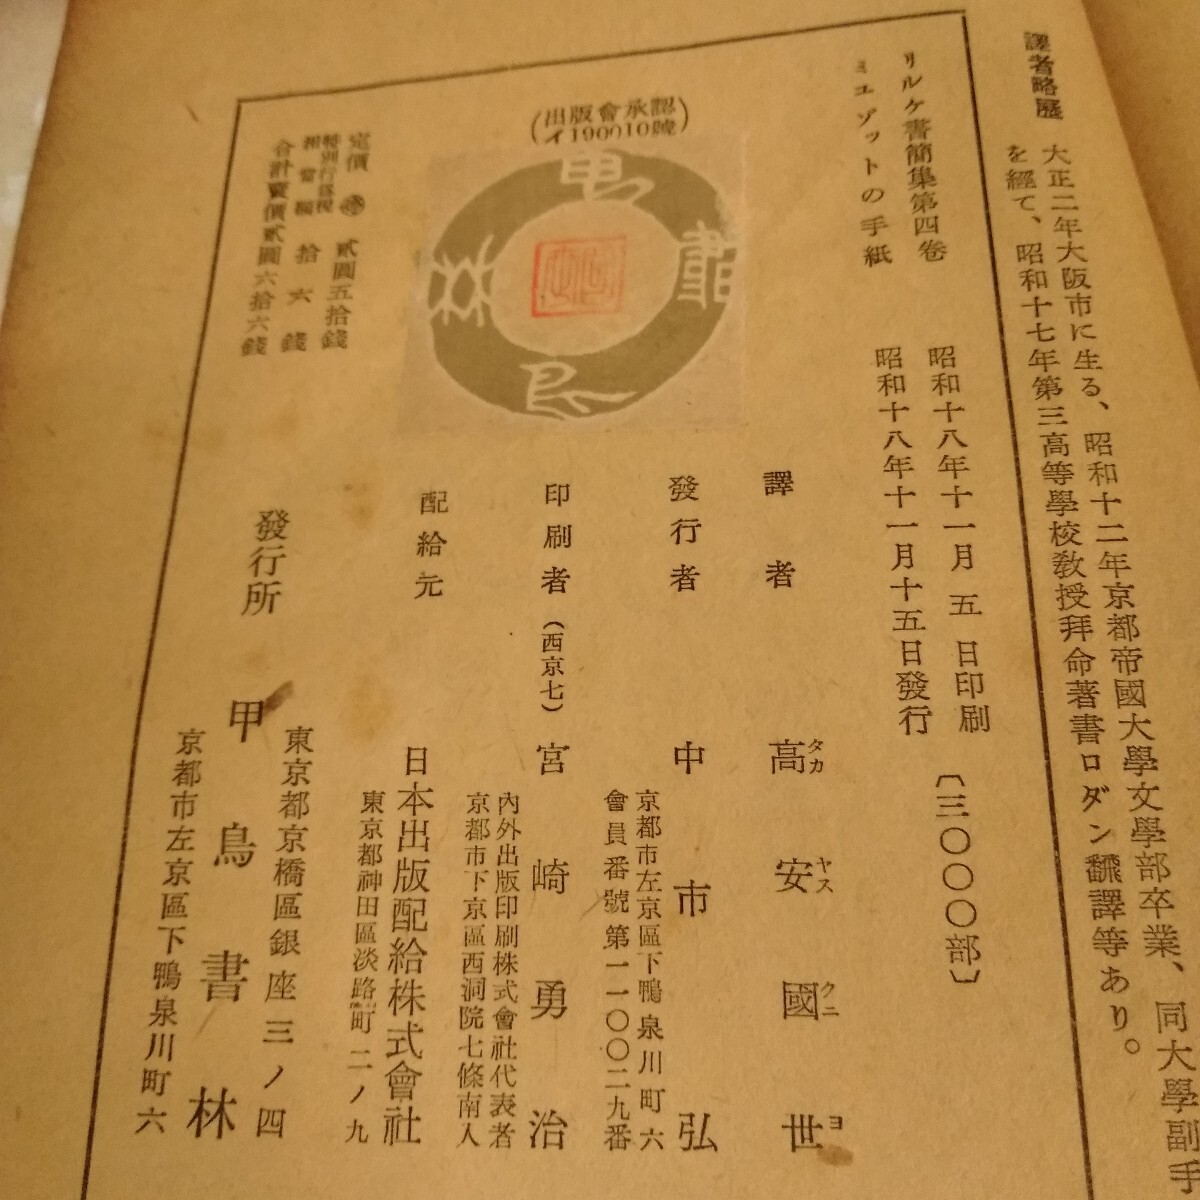 譯者略歷
大正二年大阪市に生る、昭和十二年京都帝國大學文學部卒業、同大學副手
を經て、昭和十七年第三高等學校教授拜命著書ロダン飜譯等あり。
リルケ書簡集第四卷
ミュゾットの手紙
昭和十八年十一月五日印刷
昭和十八年十一月十五日發行
〔三〇〇〇部〕
(出版會承認
イ190010號)
甲鳥書林
定價 貳圓五拾錢
特別行爲稅
相當額 拾六錢
合計賣價貳圓六拾六錢
譯者 高安國世
タカ ヤス クニ ヨ
發行者 中市弘
京都市左京區下鴨泉川町六
會員番號第一一〇〇二九番
印刷者(西京七) 宮崎勇治
內外出版印刷株式會社代表者
京都市下京區西洞院七條南入
配給元 日本出版配給株式會社
東京都神田區淡路町二ノ九
發行所 甲鳥書林
東京都京橋區銀座三ノ四
京都市左京區下鴨泉川町六